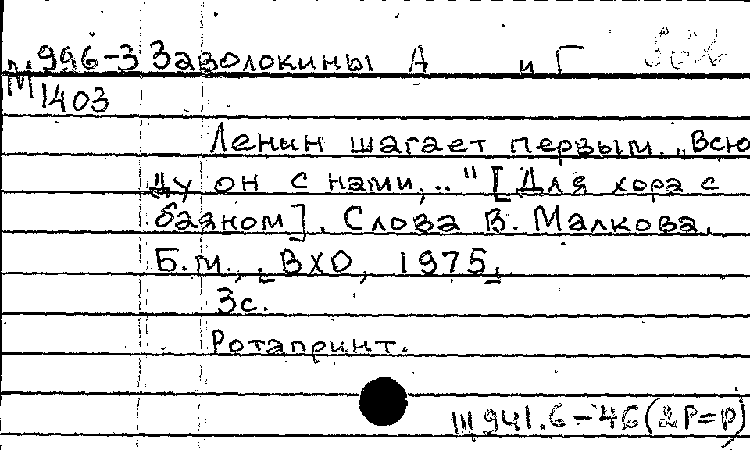 М 996-3 Заволокины А и Г
1403
Ленин шагает первым. „Всю
ду он с нами,.." [Для хора с
баяном]. Слова В. Малкова.
Б.м., ВХО, 1975.
3с.
Ротапринт.
Щ941.6-46(2Р=Р)